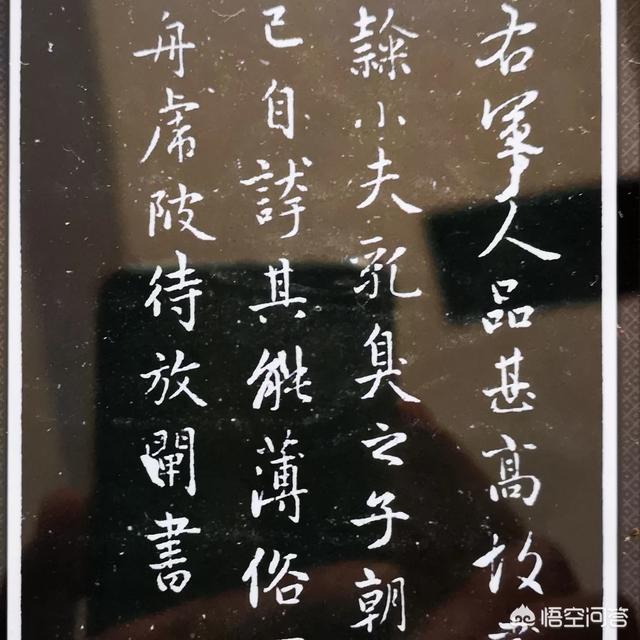 右軍人品甚高故
隸小夫乳臭之子朝
已自誇其能薄俗
舟虎陂待放閘書
悟空问答